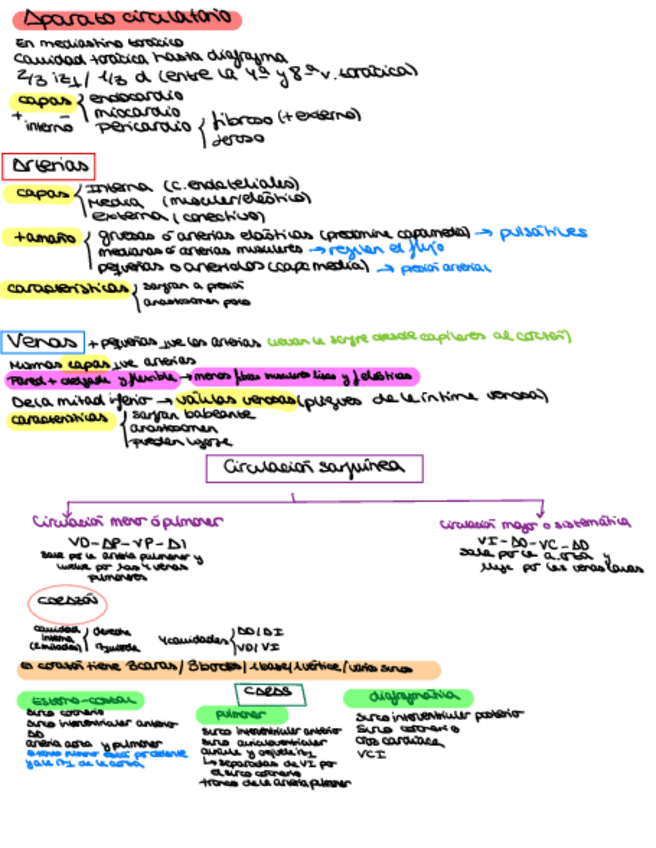 Aparato circulatorio
En mediastino torácico
Cavidad torácica hasta diafragma
2/3 izq / 1/3 d (entre la 4ª y 8ª v. torácica)
capas { endocardio
miocardio
+ interno
pericardio { fibroso (+ externo)
seroso
Arterias
capas { Interna (c. endoteliales)
Media (muscular/elástico)
externa (conectivo)
+ tamaño { gruesas o arterias elásticas (predomina capa media) → pulsátiles
medianas o arterias musculares → regulan el flujo
pequeñas o arteriolas (capa media) → presión arterial
características { sangran a presión
anastosomen poco
Venas + pequeñas que las arterias llevan la sangre desde capilares al corazón)
Mismas capas que arterias
Pared + delgada y flexible → menos fibras musculares lisas y f elásticas
De la mitad inferior → válvulas venosas (pliegues de la íntima venosa)
características { sangran babeante
anastosomen
pueden ligarse
Circulación sanguínea
Circulación menor o pulmonar
VD-AP-VP-AI
sale por la arteria pulmonar y
vuelve por las 4 venas
pulmonares
Circulación mayor o sistemática
VI-AO-VC-AD
sale por la a. aorta y
llega por las venas cavas
corazón
cavidad interna (2 mitades) { derecha
izquierda
4 cavidades { AD/AI
VD/VI
El corazón tiene 3 caras / 3 bordes / 1 base / 1 vértice / varios surcos
CARAS
Esterno-costal
surco coronario
surco interventricular anterior
AD
arteria aorta y pulmonar
y a la izq de la aorta
pulmonar
surco interventricular anterior
surco auriculoventricular
aurícula y orejuela izq
↳ separadas de VI por
el surco coronario
tronco de la arteria pulmonar
diafragmática
surco interventricular posterior
surco coronario
cruz cardíaca
VCI